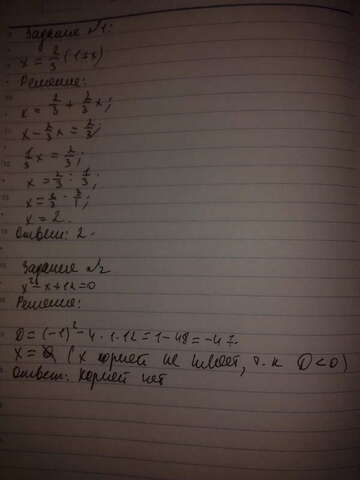 Задание №1:
x = 2/3 (1+x)
Решение:
x = 2/3 + 2/3 x;
x - 2/3 x = 2/3;
1/3 x = 2/3;
x = 2/3 : 1/3;
x = 2/3 · 3/1;
x = 2.
Ответ: 2.
Задание №2
x² - x + 12 = 0
Решение:
D = (-1)² - 4 · 1 · 12 = 1 - 48 = -47
x = Ø (x корней не имеет, т.к D < 0)
Ответ: корней нет